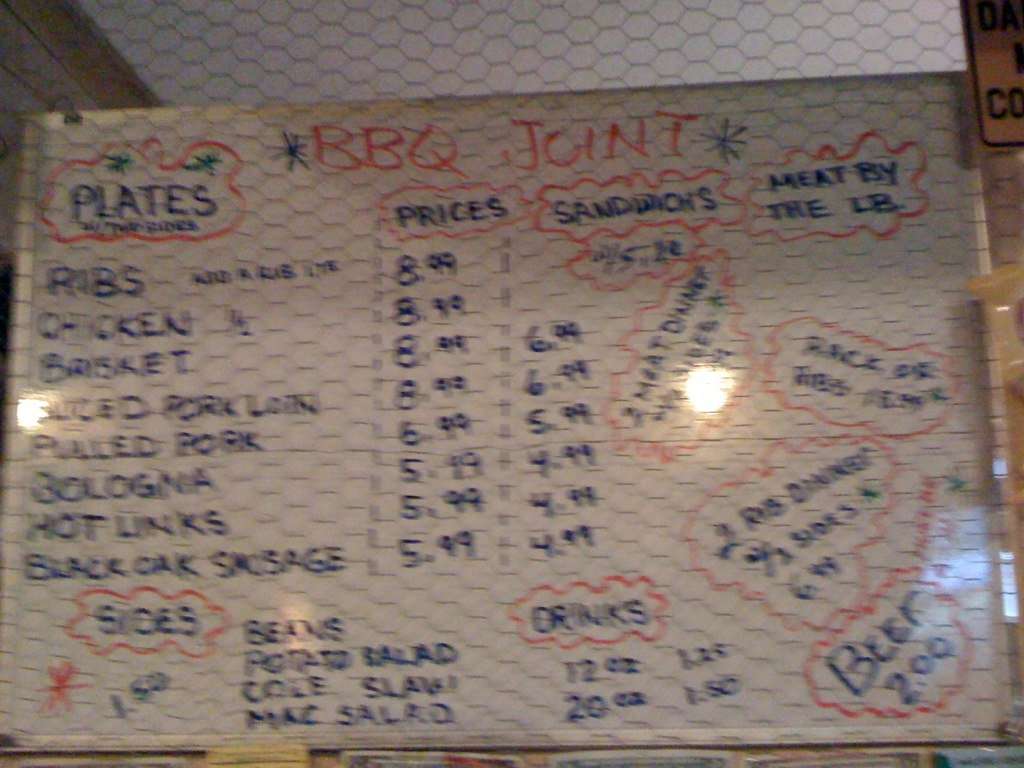 BBQ JOINT
PLATES
W/ TWO SIDES
PRICES
SANDWICHS
MEAT BY
THE LB.
RIBS ADD A RIB 8.99
CHICKEN ½ 8.99
BRISKET 8.99 6.99
SLICED PORK LOIN 8.99 6.99
PULLED PORK 6.99 5.99
BOLOGNIA 5.99 4.99
HOT LINKS 5.99 4.99
BLACK OAK SAUSAGE 5.99 4.99
MEAT DINNER
SIDES
RACK OF
RIBS
2 RIB DINNER
W/ SIDES
6.99
SIDES
1.50
BEANS
POTATO SALAD
COLE SLAW
MAC SALAD
DRINKS
12 oz 1.25
20 oz 1.50
BEER
2.00
CO